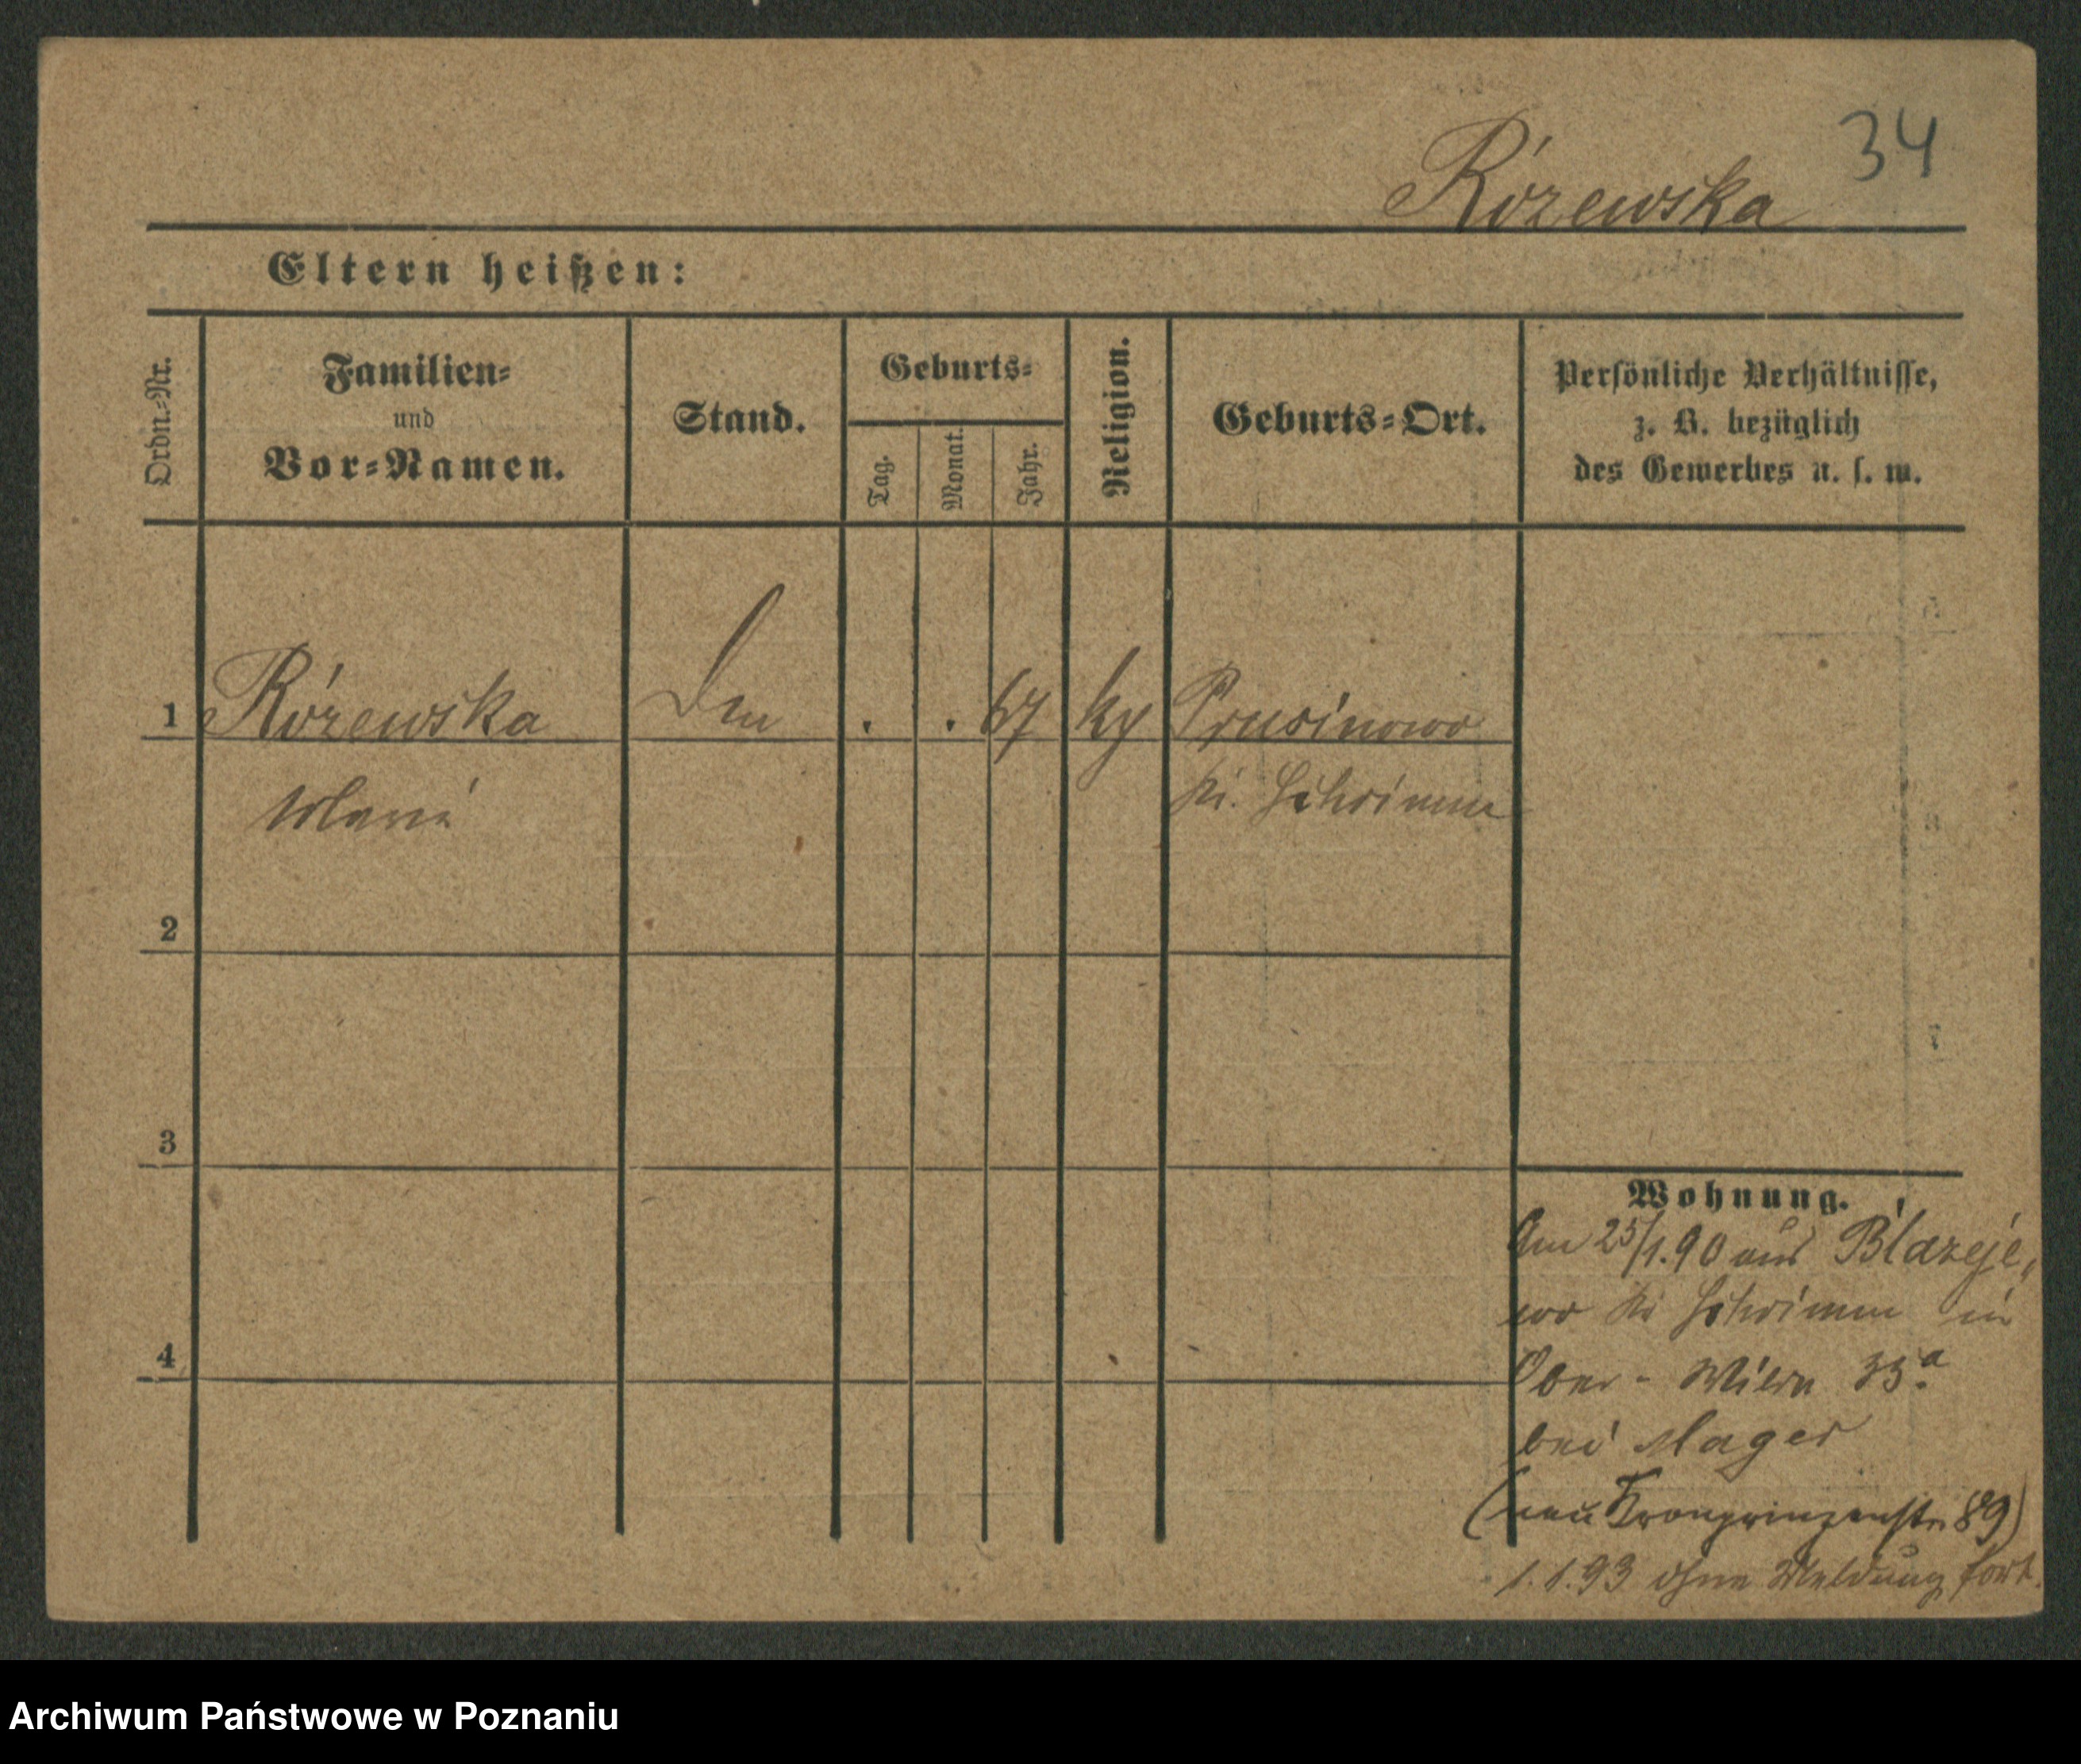 34
Rózewska
Eltern heißen:
Ordn.-Nr.
Familien-
und
Vor-Namen.
Stand.
Geburts-
Tag.
Monat.
Jahr.
Religion.
Geburts-Ort.
Persönliche Verhältnisse,
z. B. bezüglich
des Gewerbes u. s. w.
1 Rózewska . . 67 Prusinowo
Marie Kr. Schrimm
2
3
4
Wohnung.
Am 25/1.90 aus Błazeje,
wo Kr Schrimm in
Ober-Wilda 35a.
bei Mager
(neu Kronprinzenstr. 89)
1.1.93 ohne Meldung fort.
Archiwum Państwowe w Poznaniu